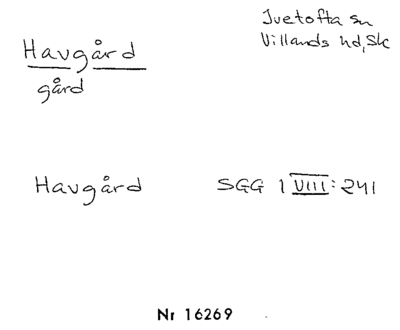 Ivetofta sn
Villands hd, Sk
Havgård
gård
Havgård SGG 1 VIII: 241
Nr 16269